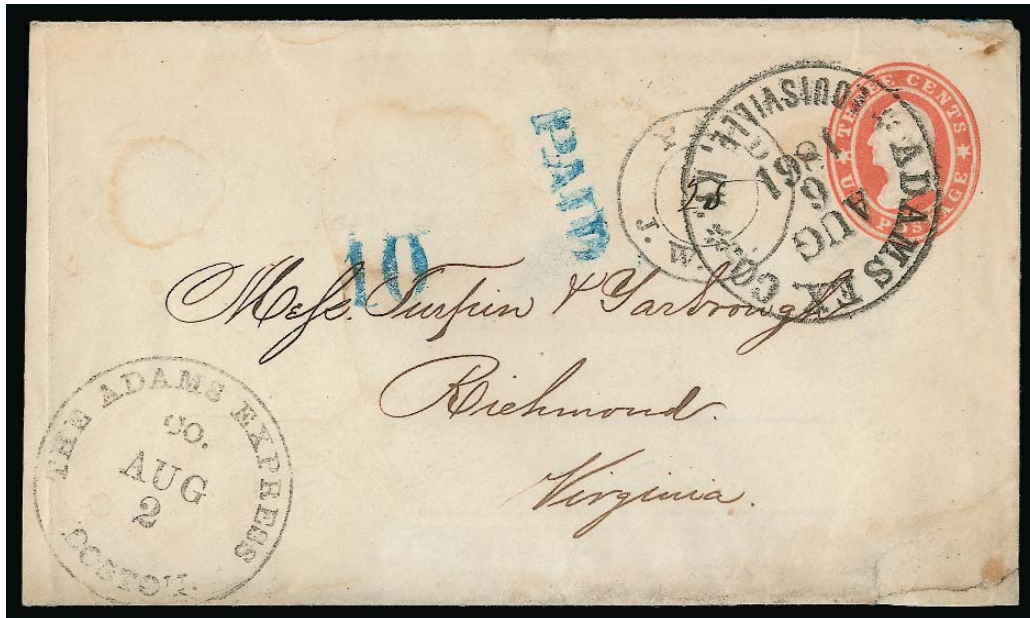 THREE CENTS
U.S. POSTAGE
ADAMS EX. CO. LOUISVILLE, KY.
AUG
9
1861
PAID
10
25
Mess. Turpin & Yarbrough
Richmond.
Virginia.
THE ADAMS EXPRESS
CO.
AUG
2
BOSTON.